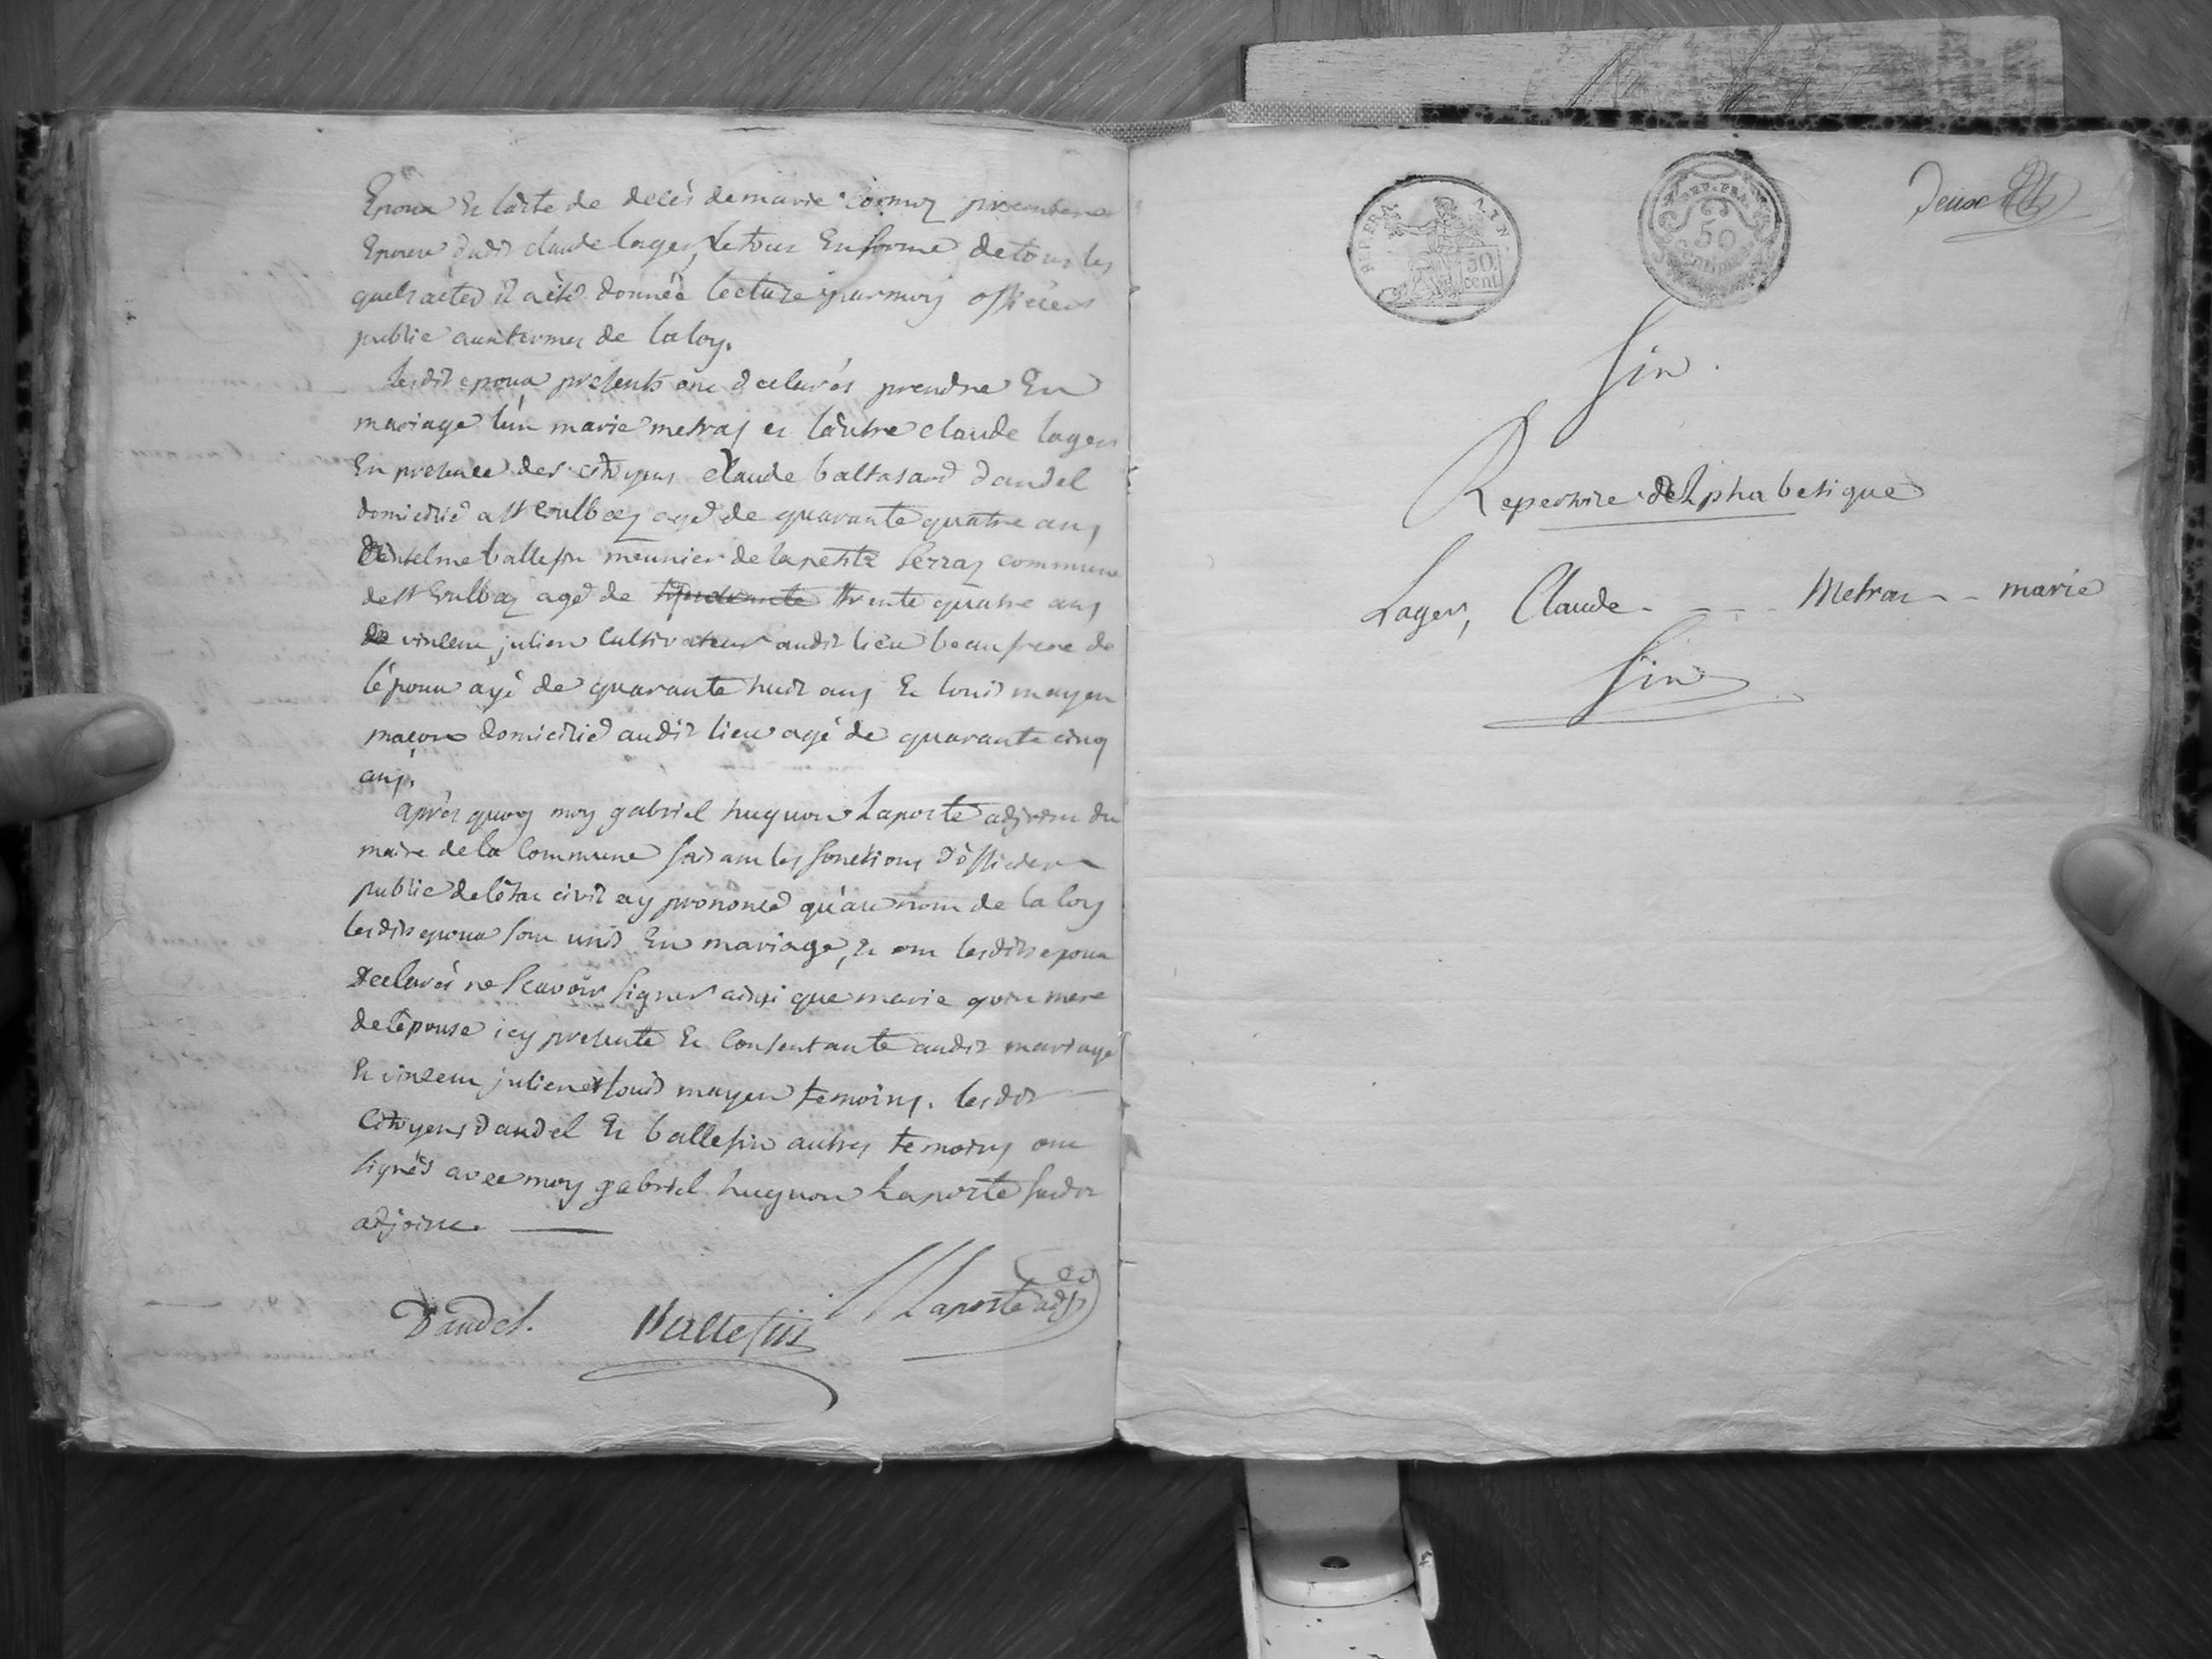 Epoux Et lacte de decès de marie Cormoz premiere
Epouse dudit claude lager, le tout En forme de tous les
quels actes il a été donnée lecture par moy officier
public aux termes de la loy.
lesdits epoux presents ont declarés prendre En
mariage l'un marie metras et l'autre claude lager
En presence des citoyens claude baltasard dandel
domicilié a st Eulbaz agé de quarante quatre ans
danselme ballefin meunier de la petite Serraz commune
de st Eulbaz agé de trente quatre ans
de vincent julien Cultivateur audit lieu beau frere de
l'époux agé de quarante huit ans Et louis mayen
maçon domicilié audit lieu agé de quarante cinq
ans.
après quoy moy gabriel huguon Laporte adjoint du
maire de la Commune faisant les fonctions d'officier
public de l'état civil ay prononcé qu'au nom de la loy
lesdits epoux sont unis En mariage, et ont lesdits epoux
Declarés ne Scavoir Signer ainsi que marie mere
de l'epouse icy presente Et Consentante audit mariage
Et vincent julien et louis mayen temoins. lesdits
Citoyens dandel Et ballefin autres temoins ont
signés avec moy gabriel huguon Laporte susdit
adjoint.
Dandel. Ballefin Laporte adj
Deux
REP. FRA. 50 cent
REP. FRA. 50 Centimes
fin.
Repertoire Alphabetique
Lager, Claude - - - - Metras - - marie
fin